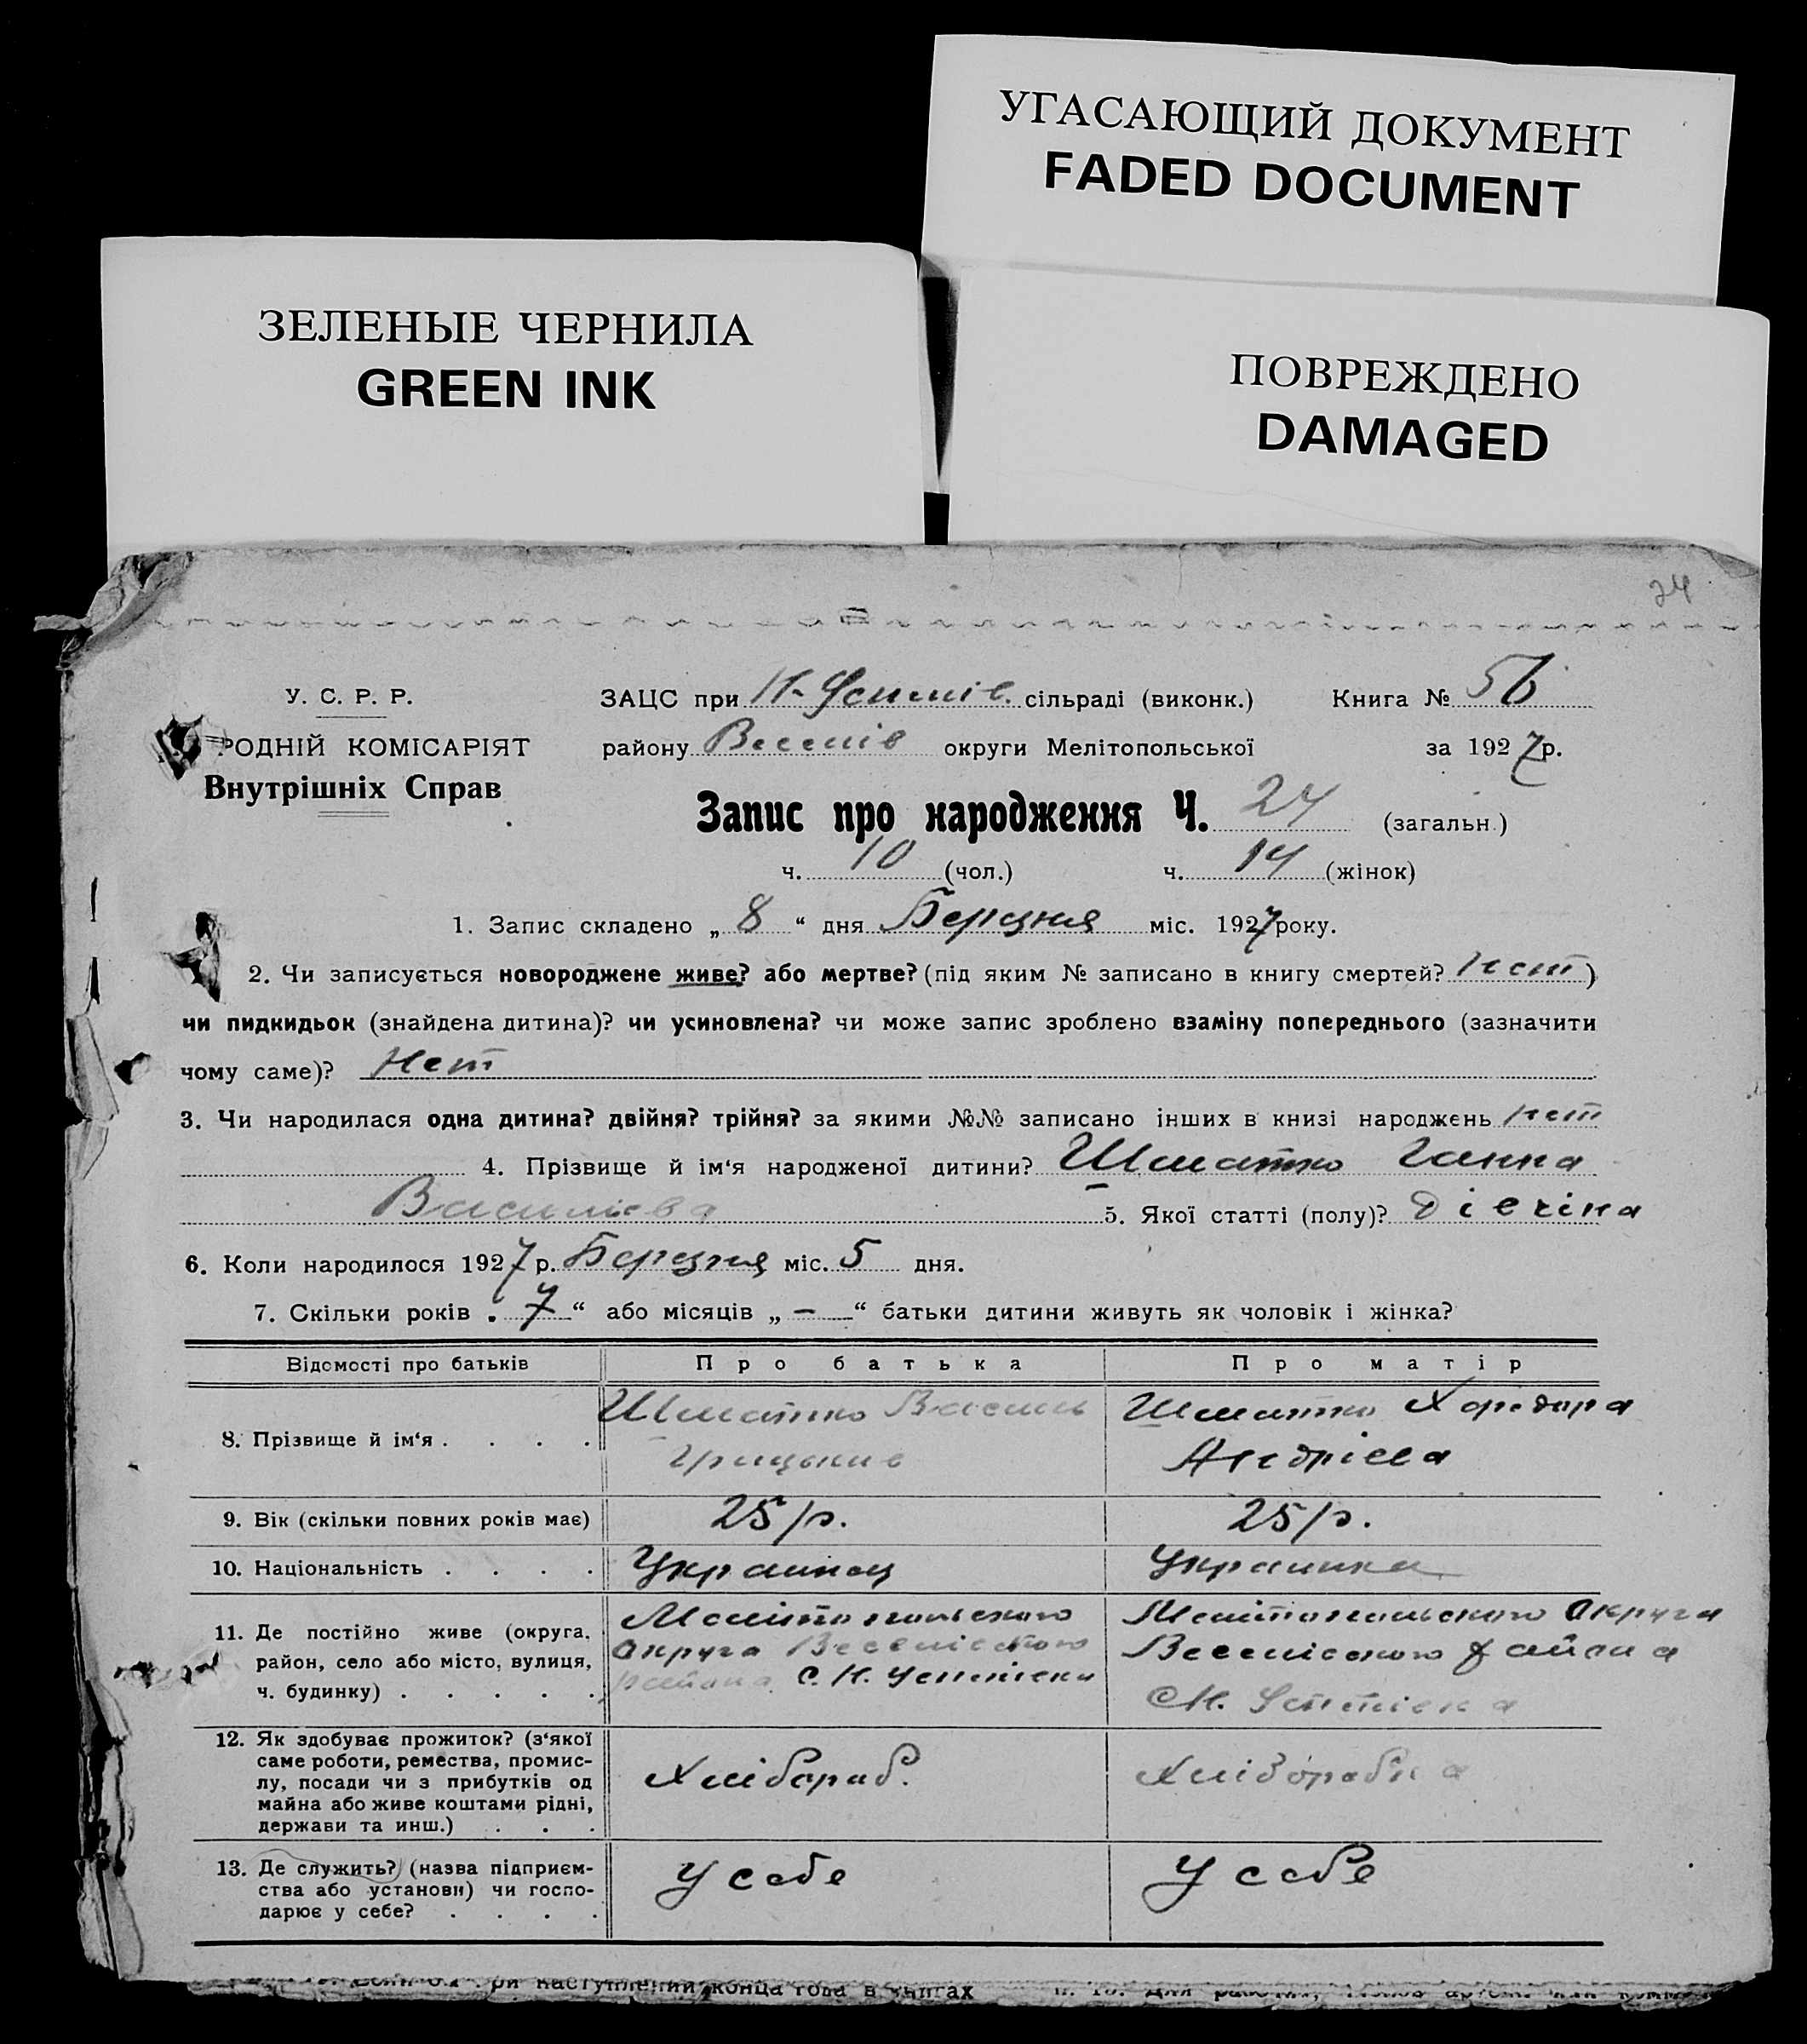 УГАСАЮЩИЙ ДОКУМЕНТ
FADED DOCUMENT
ЗЕЛЕНЫЕ ЧЕРНИЛА
GREEN INK
ПОВРЕЖДЕНО
DAMAGED
24
У. С. Р. Р.
РОДНІЙ КОМІСАРІЯТ
Внутрішніх Справ
ЗАЦС при Н-Успенів. сільраді (виконк.) Книга № 56
району Веселів округи Мелітопольської за 1927 р.
Запис про народження Ч. 24 (загальн.)
ч. 10 (чол.) ч. 14 (жінок)
1. Запис складено „ 8 “ дня Березня міс. 1927 року.
2. Чи записується новороджене живе? або мертве? (під яким № записано в книгу смертей? Нет)
чи пидкидьок (знайдена дитина)? чи усиновлена? чи може запис зроблено взаміну попереднього (зазначити
чому саме)? Нет
3. Чи народилася одна дитина? двійня? трійня? за якими №№ записано інших в книзі народжень нет
4. Прізвище й ім‘я народженої дитини? Шматко Ганна
Василієва 5. Якої статті (полу)? дівчіна
6. Коли народилося 1927 р. Березня міс. 5 дня.
7. Скільки років „ 7 “ або місяців „ — “ батьки дитини живуть як чоловік і жінка?
Відомості про батьків Про батька Про матір
8. Прізвище й ім‘я . . . . Шматко Василь Шматко
Грицьків Андрієва
9. Вік (скільки повних років має) 25 р. 25 р.
10. Національність . . . . Украинец Украинка
11. Де постійно живе (округа, район, село або місто, вулиця, ч. будинку) . . . . .
Мелітопольского Мелітопольского Округа
Округа Веселівского Веселівского Района
района С. Н. Успенівки С Н. Успенівка
12. Як здобуває прожиток? (з‘якої
саме роботи, ремества, промис-
лу, посади чи з прибутків од
майна або живе коштами рідні,
держави та инш.) . . .
Хлібораб. Хліборабка
13. Де служить? (назва підприєм-
ства або установи) чи госпо-
дарює у себе? . . . .
У себе У себе
при наступлении конца года в книгах